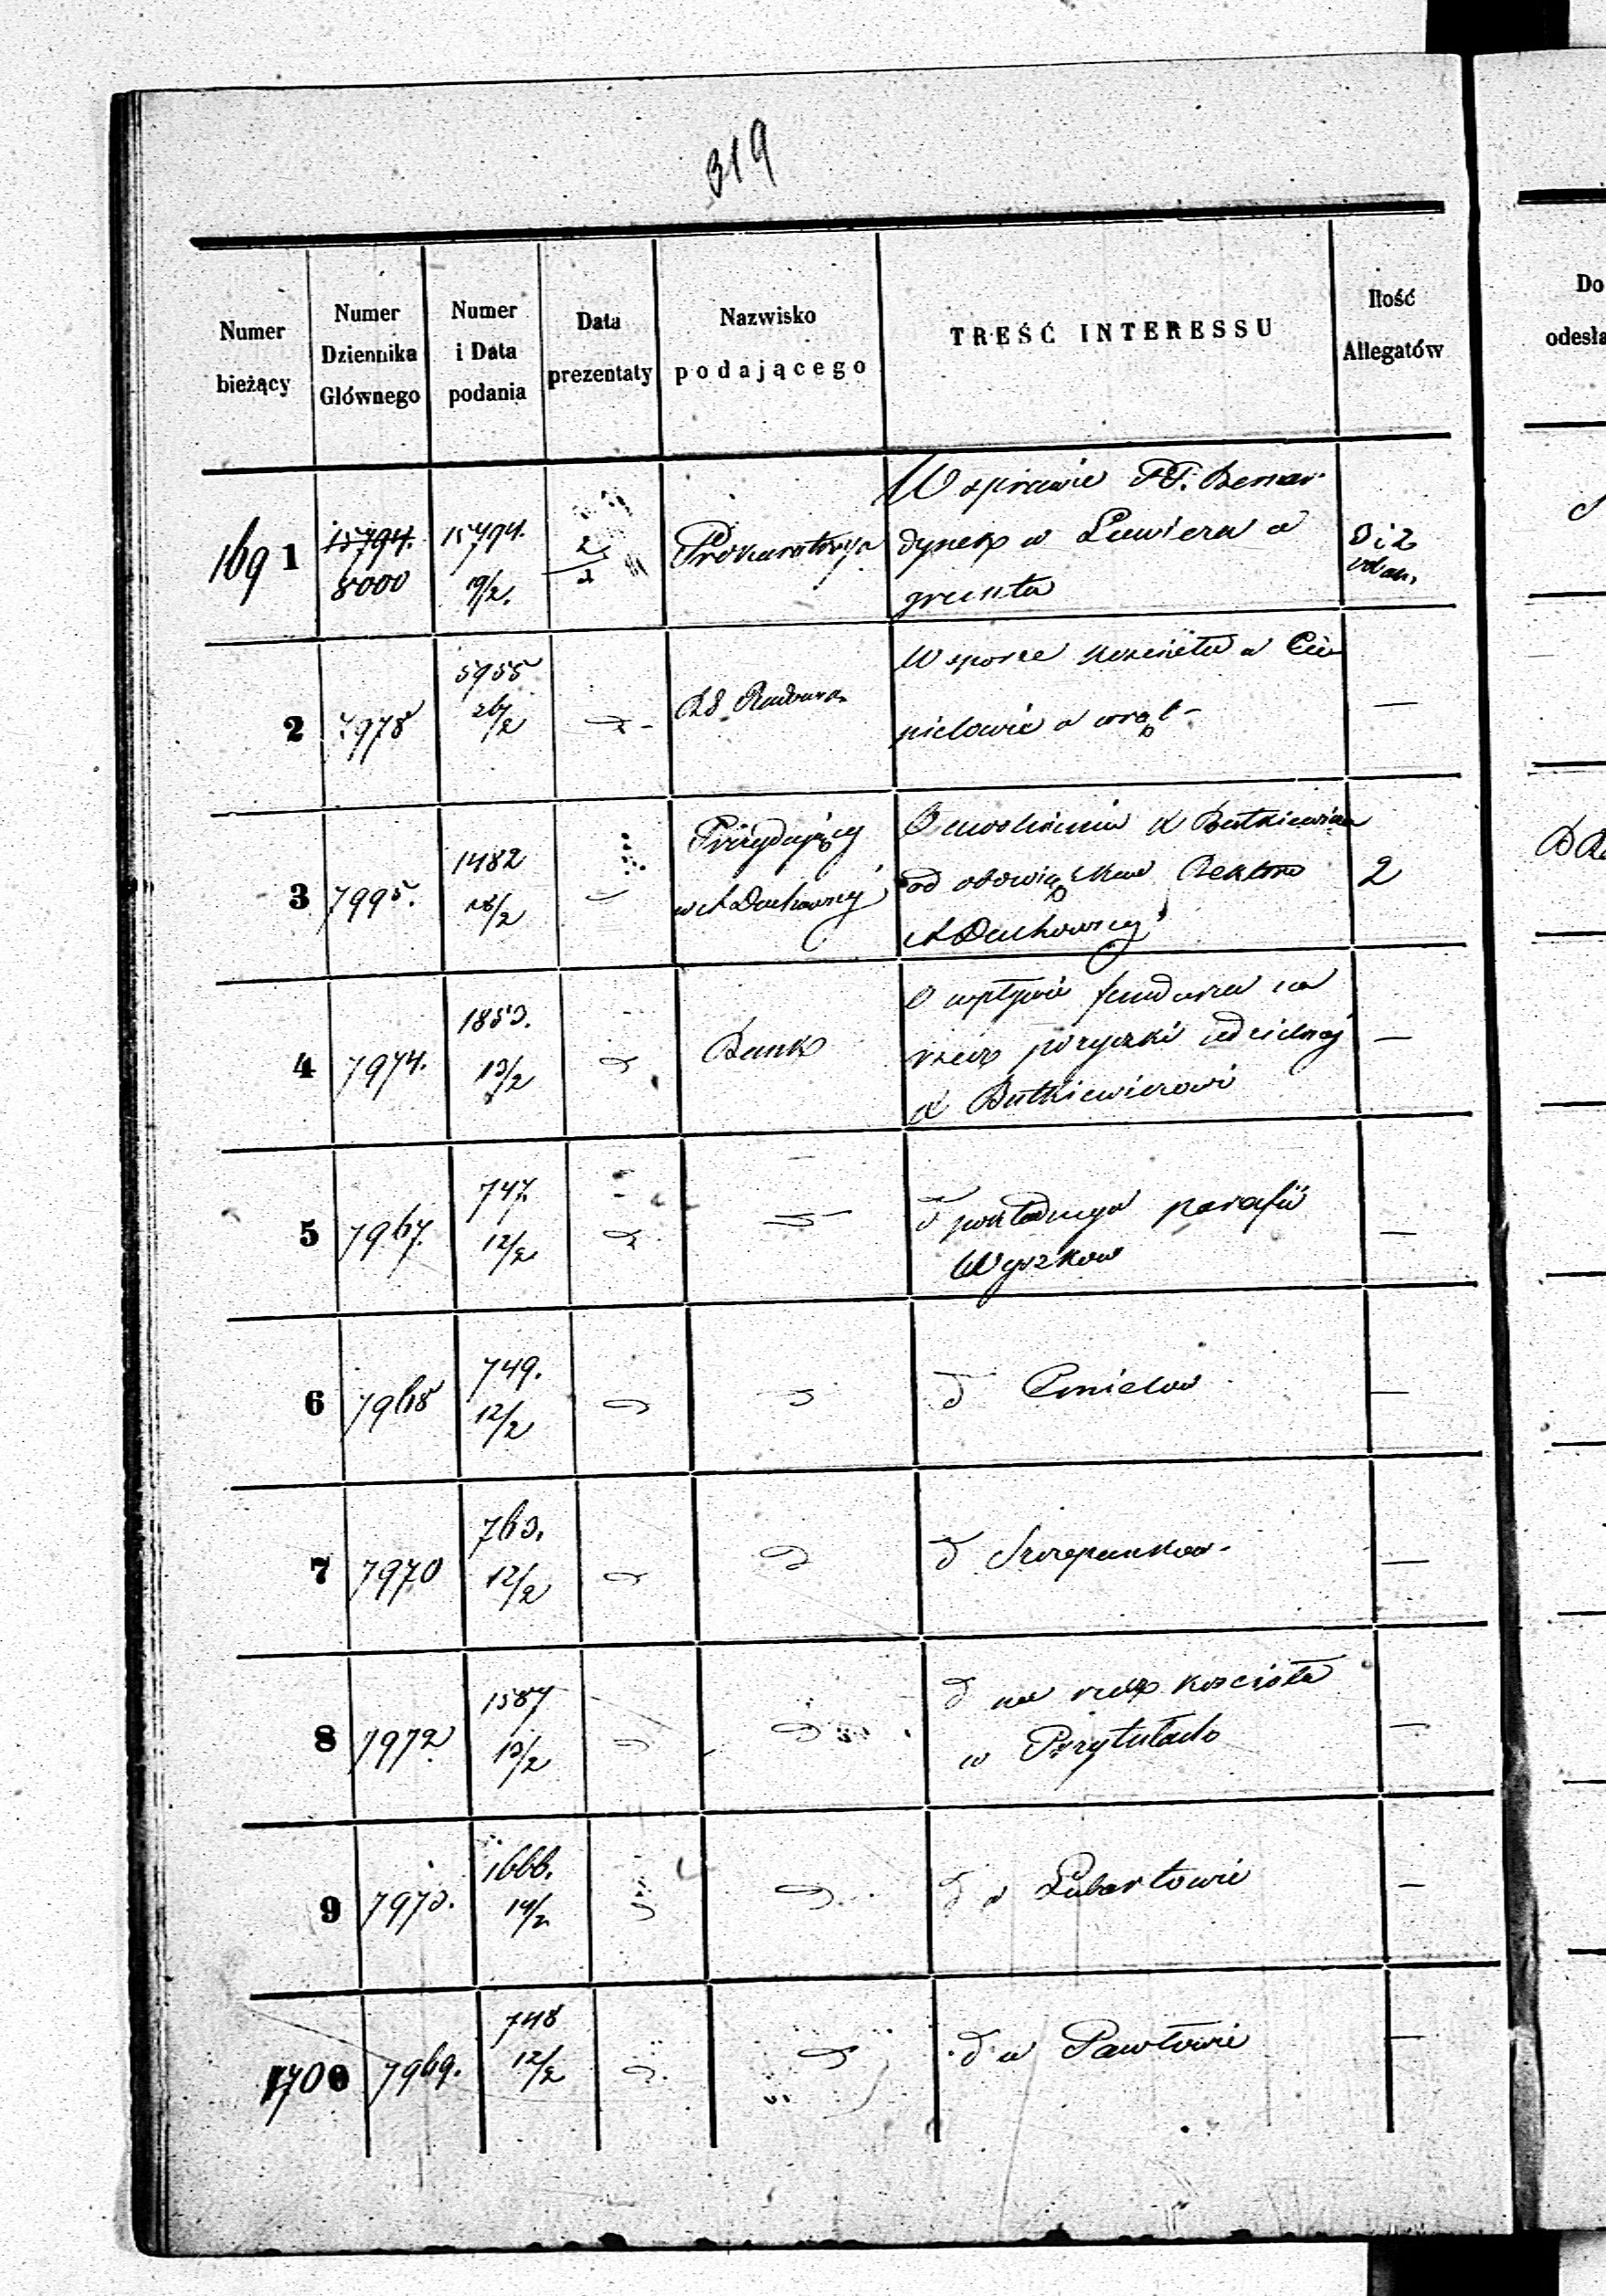 319
Numer bieżący
Numer Dziennika Głównego
Numer i Data podania
Data prezentaty
Nazwisko podającego
TREŚĆ INTERESSU
Ilość Allegatów
Do
odesła
1691
15794.
8000
15794.
19/2.
2/2
Prokuratorya
W sprawie PP. Bernar
dynek w
o
grunta
3 i 2
2
7978
5955
26/2
W sporze kościoła w Cie
pielowie o
—
3
7995.
1482
18/2
Prezydujący
w A Duchownej
O uwolnieniu X Butkiewicza
od obowiązków Rektora
A Duchownej
2
4
7974.
1853.
13/2
Bank
O wpływie fundusza na
rzecz pożyczki udzielonej
X Butkiewiczowi
—
5
7967.
747.
12/2
d pokładnego parafii
Wyszków
—
6
7968
749.
12/2
d Ćmielów
—
7
7970
763.
12/2
d Szczepanków
—
8
7972
1587
13/2
d na rzecz kościoła
w Przytułach
—
9
7973.
1666.
14/2
d w Lubartowie
—
1700
7969.
748
12/2
d w Pawłowie
—